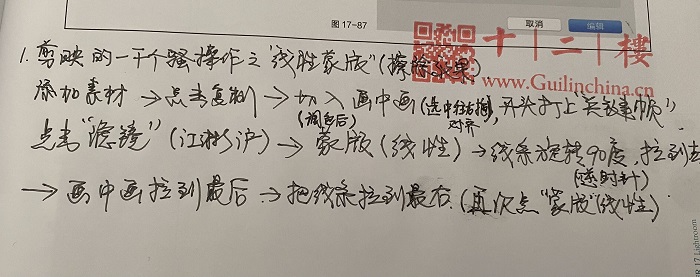 图 17-87
取消
编辑
十二楼
www.Guilinchina.cn
1. 剪映的一千个骚操作之"线性蒙版"(擦除效果)
添加素材 → 点击复制 → 切入画中画(选中往右拖, 开头打上"关键帧")
(调色后)
对齐
点击"滤镜"(江浙沪) → 蒙版(线性) → 线条旋转90度, 拉到左
(逆时针)
→ 画中画拉到最后 → 把线条拉到最右.(再次点"蒙版"线性)
Lightroom